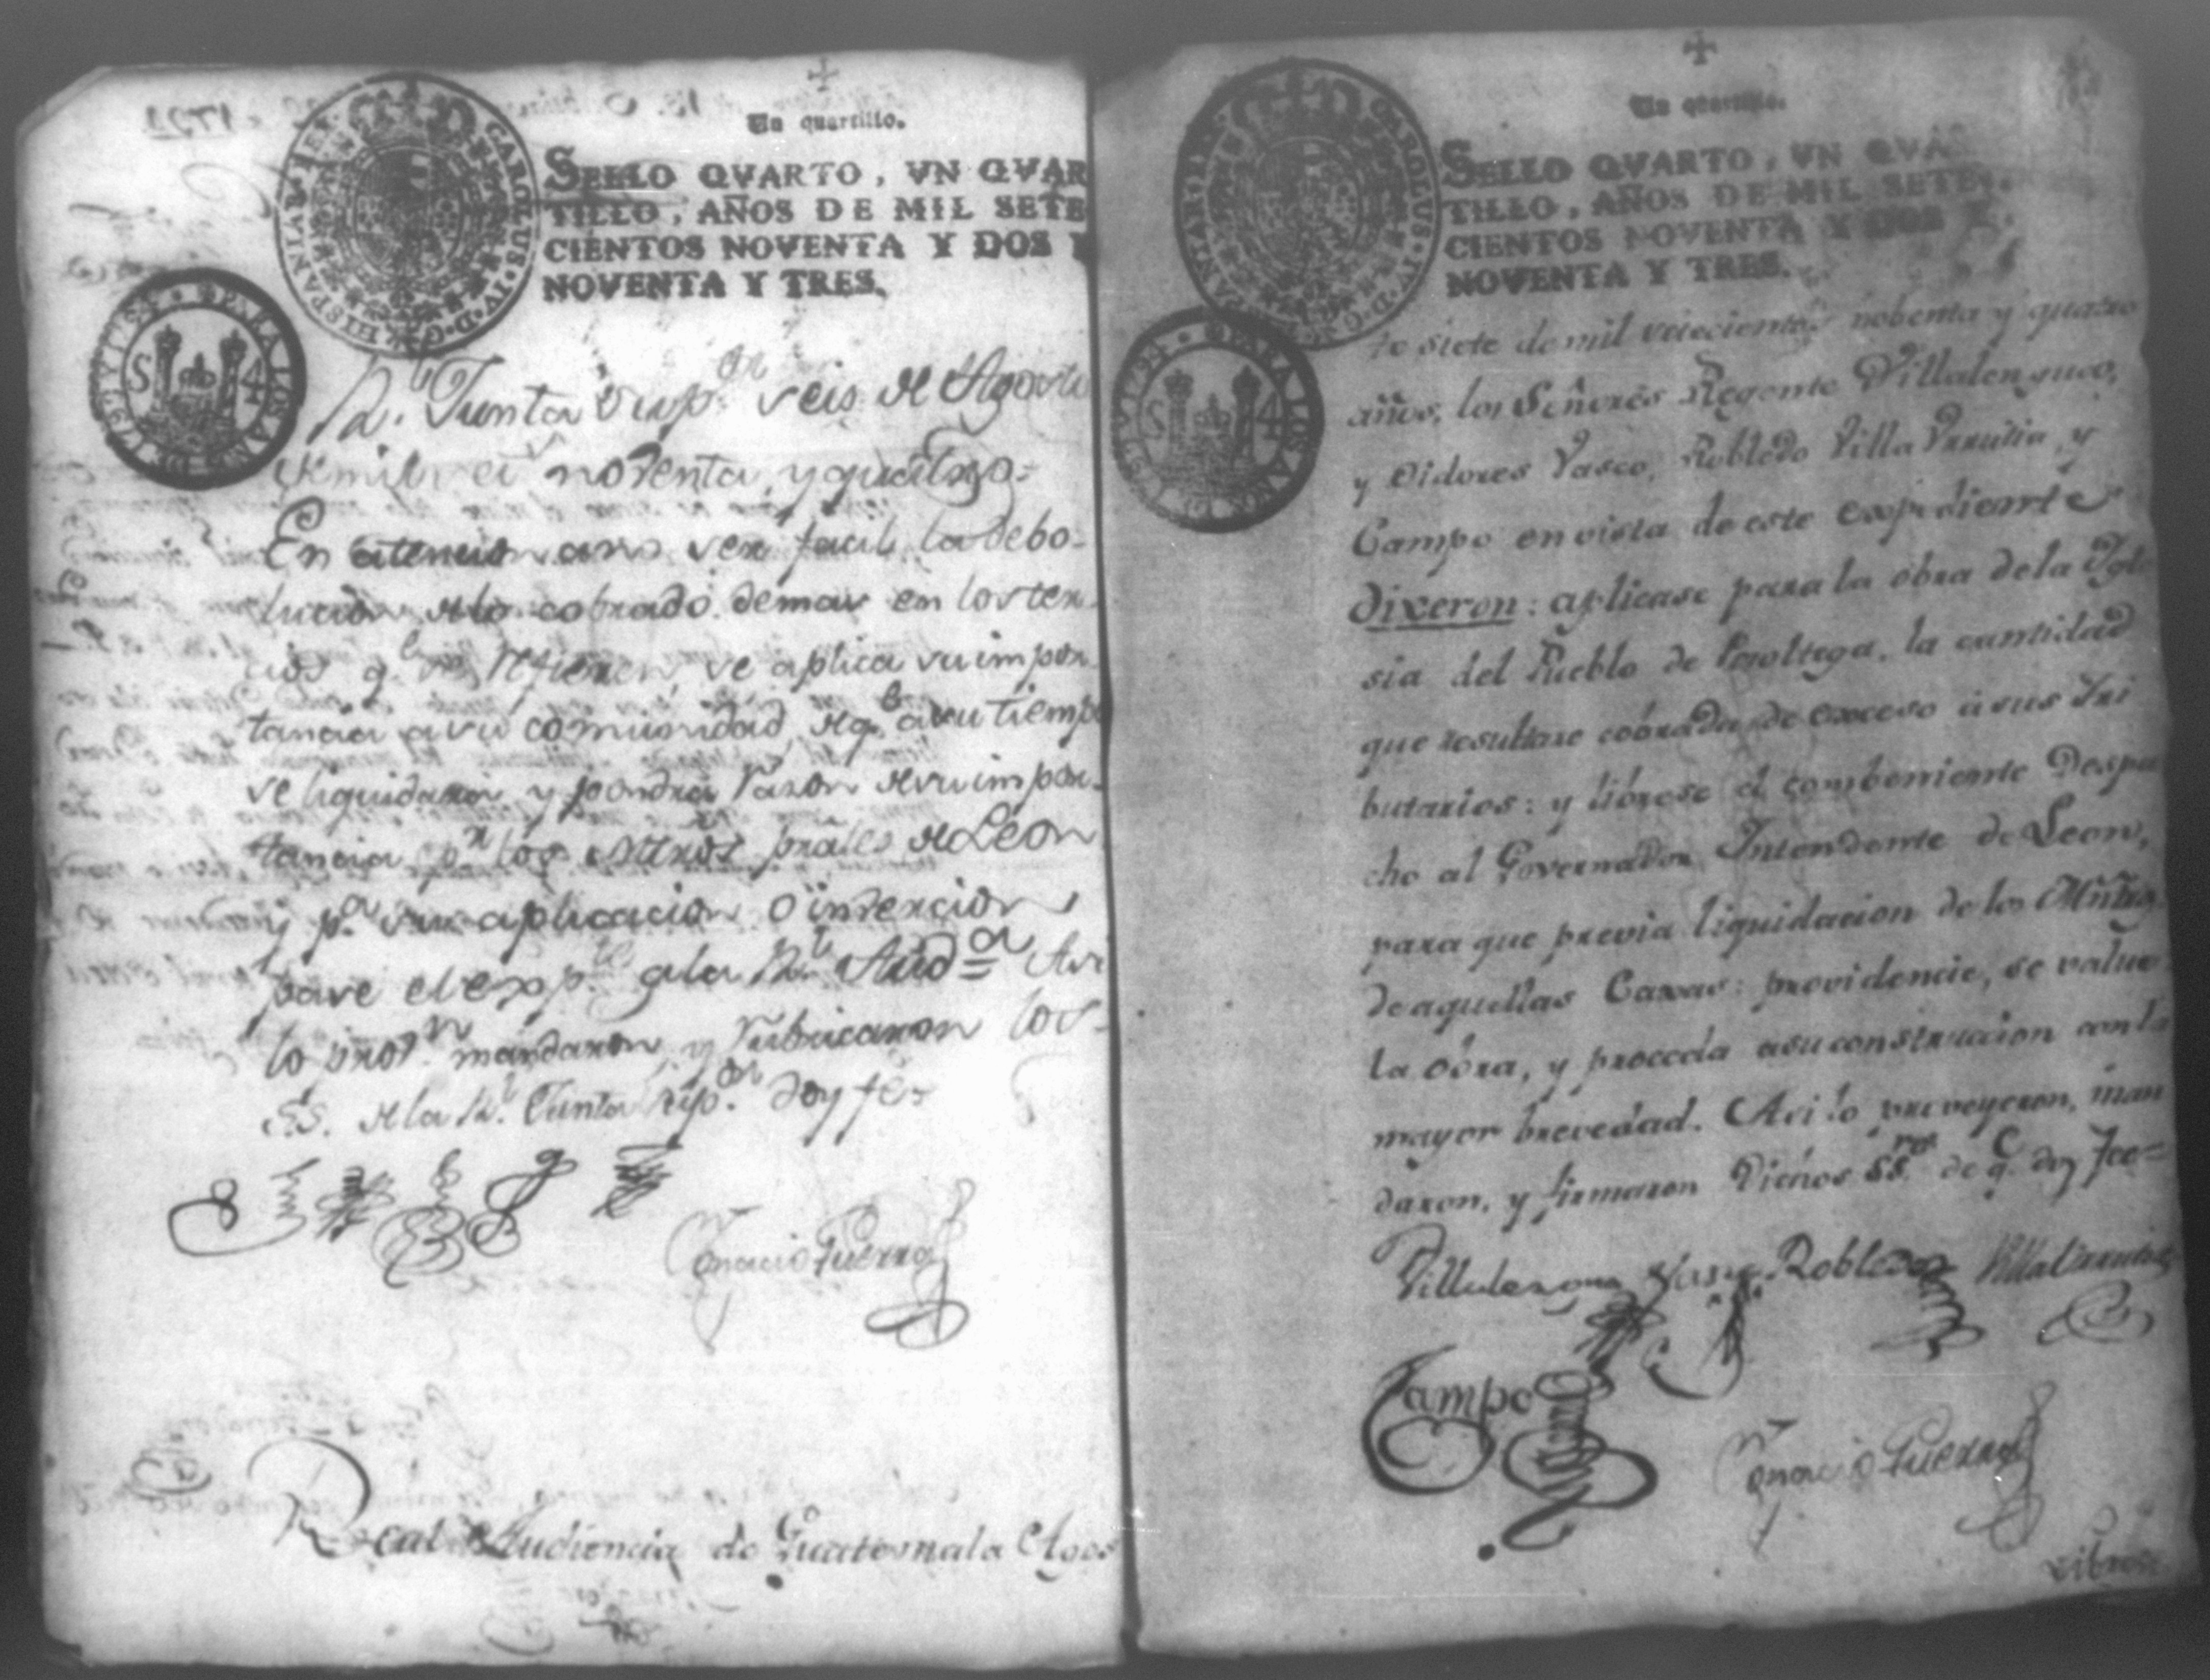 Un quartillo.
SELLO QVARTO, VN QVAR
TILLO, AÑOS DE MIL SETE
CIENTOS NOVENTA Y DOS Y
NOVENTA Y TRES.
HISPANIAR REX CAROLUS IV D G
PARA LOS AÑS DE 179
S 4
Rl. Junta Supor. seis de Agosto
de mil noventa, y quatro=
En atencion a no ser facil la debo-
lucion de lo cobrado demas en los ter-
cios qe. se refieren, se aplica su impor-
tancia a su comunidad, de qe. a su tiempo
se liquidara y pondra razon de su impor-
tancia pr. los mtros prales de Leon
y pa. su aplicacion o inversion
pase el expte. a la Rl. Auda. Asi
lo mandaron, y rubricaron los
SS. de la Rl. Junta Supor. doy fe=
Ignacio Guerra
Real Audiencia de Guatemala Agos
Un quartillo.
SELLO QVARTO, VN QVAR
TILLO, AÑOS DE MIL SETE
CIENTOS NOVENTA Y DOS Y
NOVENTA Y TRES.
HISPANIAR CAROLUS IV D G
PARA LOS AÑS
S 4
to siete de mil setecientos nobenta y quatro
años, los Señores Regente Villalengua,
y Oidores Vasco, Robledo Villa Urrutia, y
Campo en vista de este expediente
dixeron: aplicase para la obra de la Igle
sia del Pueblo de la cantidad
que resultare cobrada de exceso à sus Tri
butarios: y librese el combeniente Despa
cho al Governador Intendente de Leon,
para que previa liquidacion de los Mñros
de aquellas Caxas: providencie, se value
la obra, y proceda a su construccion con la
mayor brevedad. Asi lo proveyeron, man
daron, y firmaron Dichos SSres. de q. doy fee=
Villalengua Vasco Robledo VillaUrrutia
Campo
Ignacio Guerra